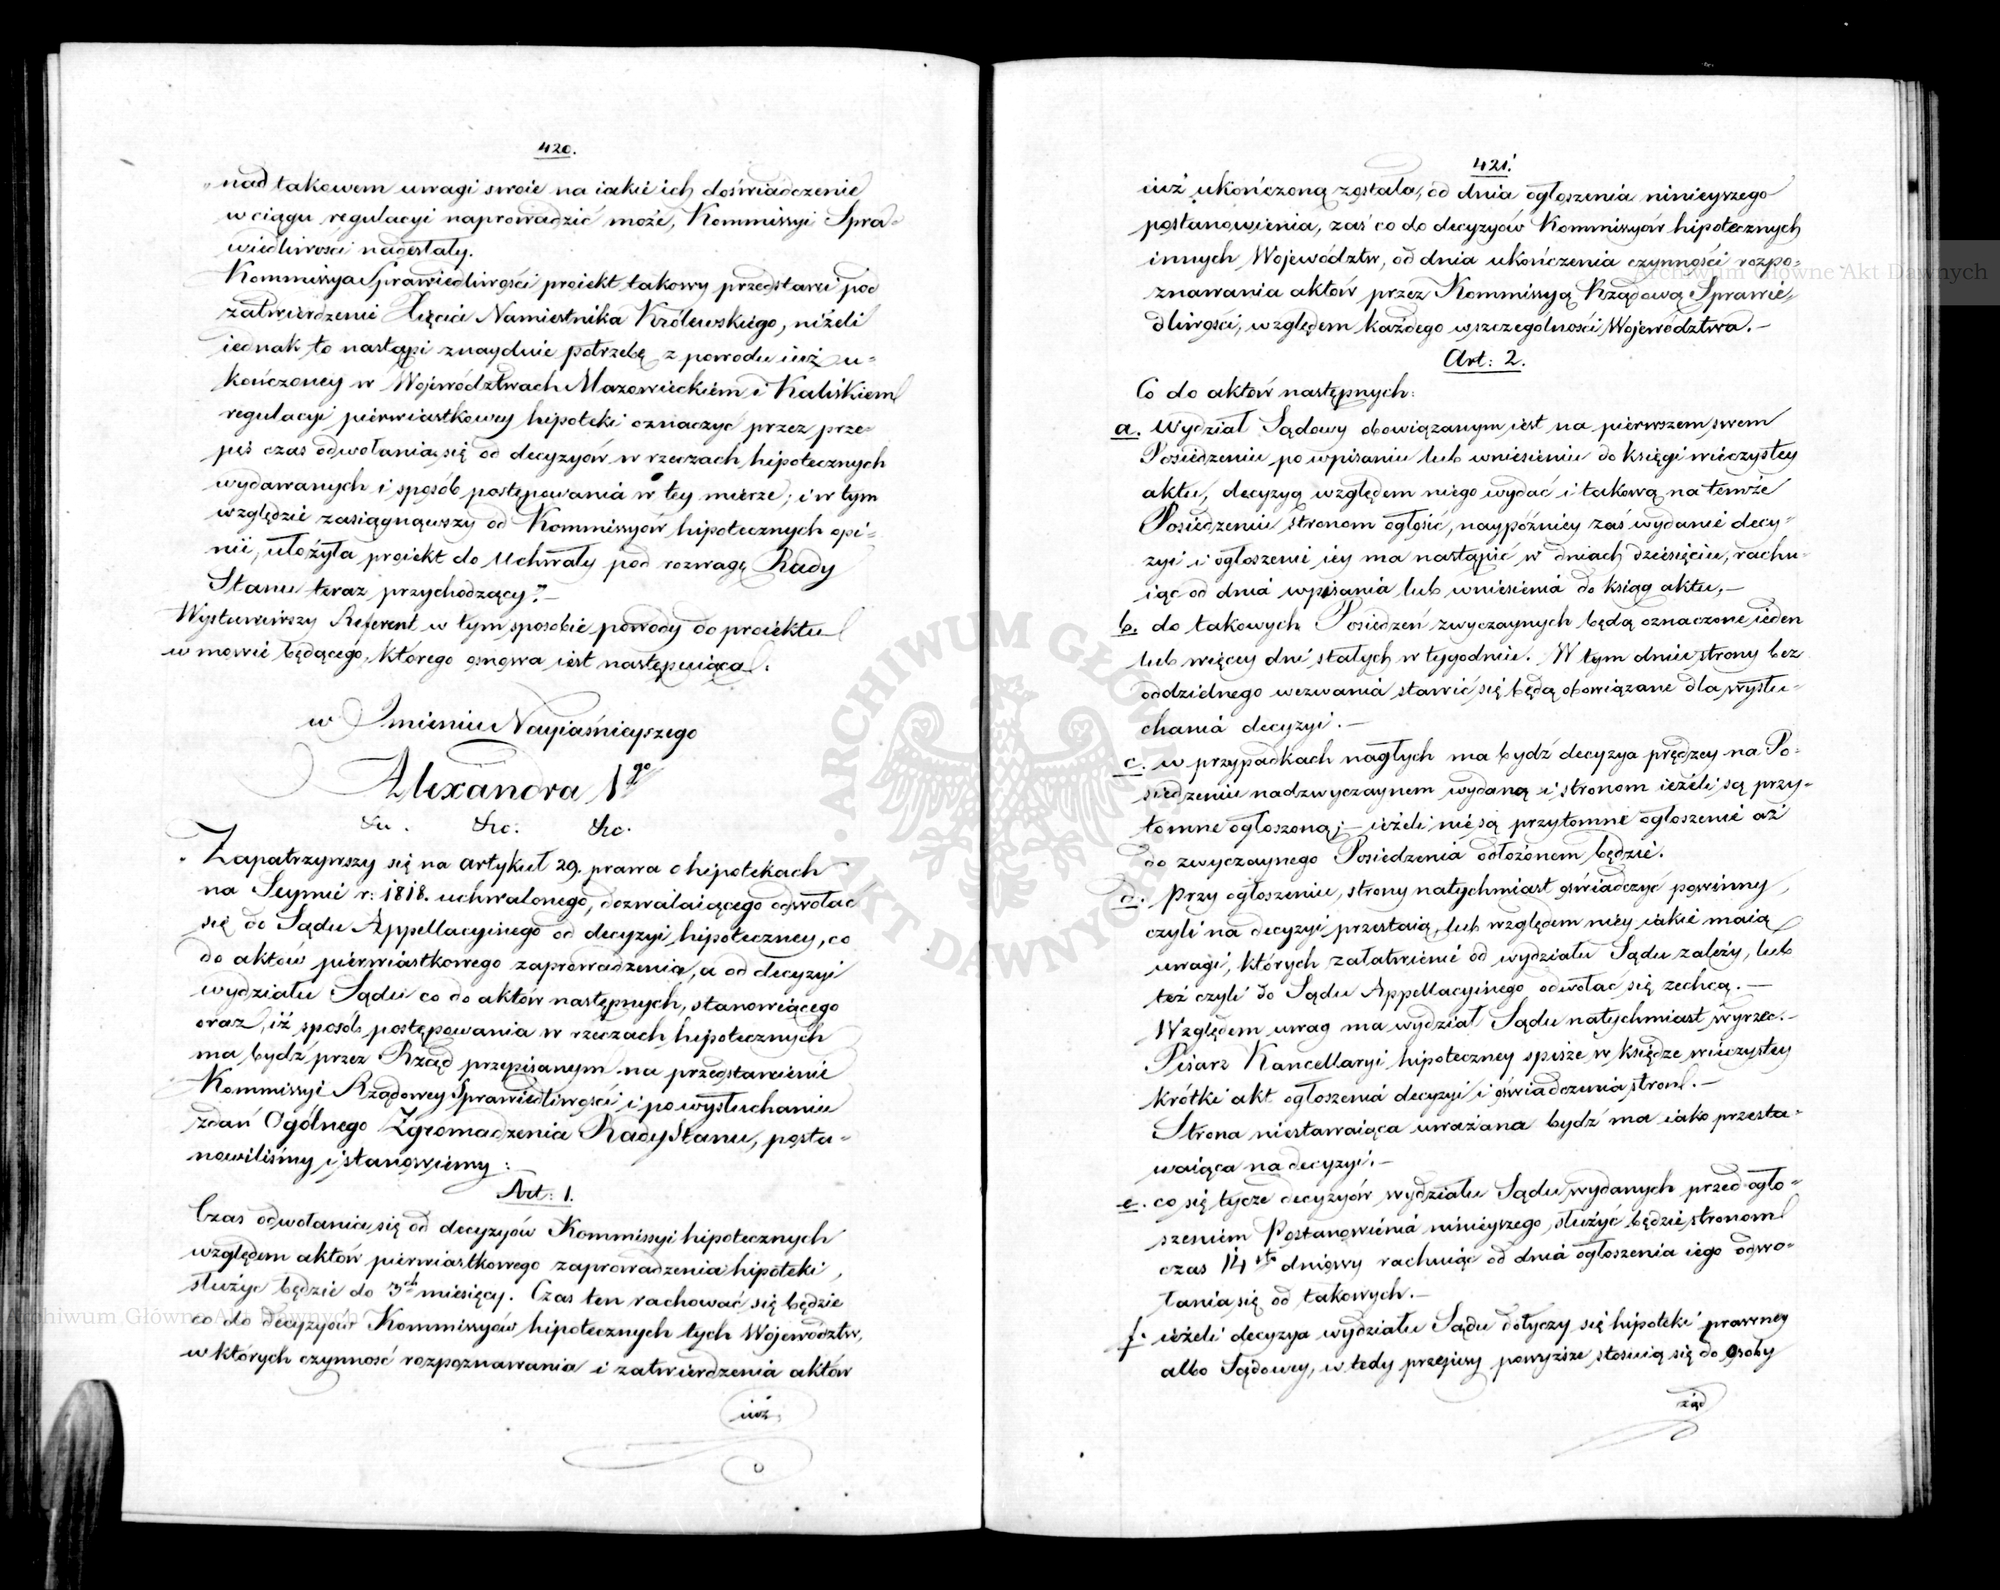 420.
„nad takowem uwagi swoie na iakie ich doświadczenie
w ciągu regulacyi naprowadzić może, Kommissyi Spra-
wiedliwości nadesłały.
Kommissya Sprawiedliwości proiekt takowy przedstawi pod
zatwierdzenie Xięcia Namiestnika Królewskiego, niżeli
iednak to nastąpi znayduie potrzebę z powodu iuż u-
kończoney w Województwach Mazowieckiem i Kaliskiem
regulacyi pierwiastkowey hipoteki oznaczyć przez prze-
pis czas odwołania się od decyzyów w rzeczach hipotecznych
wydawanych i sposób postępowania w tey mierze; i w tym
względzie zasiągnąwszy od Kommissyów hipotecznych opi-
nii, ułożyła proiekt do Uchwały pod rozwagę Rady
Stanu teraz przychodzący." —
Wystawiwszy Referent w tym sposobie powody do proiektu
w mowie będącego, którego osnowa iest następuiąca:
w Imieniu Nayiaśnieyszego
Alexandra Igo
&c. &c. &c.
Zapatrzywszy się na artykuł 29. prawa o hipotekach
na Seymie r: 1818. uchwalonego, dozwalaiącego odwołać
się do Sądu Appellacyinego od decyzyi hipoteczney, co
do aktów pierwiastkowego zaprowadzenia, a od decyzyi
wydziału Sądu co do aktów następnych, stanowiącego
oraz, iż sposób postępowania w rzeczach hipotecznych
ma bydź przez Rząd przepisanym na przedstawienie
Kommissyi Rządowey Sprawiedliwości i po wysłuchaniu
zdań Ogólnego Zgromadzenia Rady Stanu, posta-
nowiliśmy i stanowiemy:
Art: 1.
Czas odwołania się od decyzyów Kommissyi hipotecznych
względem aktów pierwiastkowego zaprowadzenia hipoteki,
służyć będzie do 3ch miesięcy. Czas ten rachować się będzie
co do decyzyów Kommissyów hipotecznych tych Województw,
w których czynność rozpoznawania i zatwierdzenia aktów
iuż
421.
iuż ukończoną została, od dnia ogłoszenia ninieyszego
postanowienia, zaś co do decyzyów Kommissyów hipotecznych
innych Województw, od dnia ukończenia czynności rozpo-
znawania aktów przez Kommissyą Rządową Sprawie-
dliwości, względem każdego wszczególności Województwa. —
Art: 2.
Co do aktów następnych:
a. Wydział Sądowy obowiązanym iest na pierwszem swem
Posiedzeniu po wpisaniu lub wniesieniu do księgi wieczystey
aktu, decyzyą względem niego wydać i takową na temże
Posiedzeniu stronom ogłosić, naypóźniey zaś wydanie decy-
zyi i ogłoszenie iey ma nastąpić w dniach dziesięciu, rachu-
iąc od dnia wpisania lub wniesienia do ksiąg aktu, —
b. do takowych Posiedzeń zwyczaynych będą oznaczone ieden
lub więcey dni stałych w tygodniu. W tym dniu strony bez
oddzielnego wezwania stawić się będą obowiązane dla wysłu-
chania decyzyi. —
c. w przypadkach nagłych ma bydź decyzya prędzey na Po-
siedzeniu nadzwyczaynem wydaną i stronom ieżeli są przy-
tomne ogłoszoną; — ieżeli nie są przytomne ogłoszenie aż
do zwyczaynego Posiedzenia odłożonem będzie.
d. Przy ogłoszeniu, strony natychmiast oświadczyć powinny,
czyli na decyzyi przestaią, lub względem niey iakie maią
uwagi, których załatwienie od wydziału Sądu zależy, lub
też czyli do Sądu Appellacyinego odwołać się zechcą. —
Względem uwag ma wydział Sądu natychmiast wyrzec. —
Pisarz Kancellaryi hipoteczney spisze w księdze wieczystey
krótki akt ogłoszenia decyzyi i oświadczenia stron. —
Strona niestawaiąca uważana bydź ma iako przesta-
waiąca na decyzyi. —
e. co się tycze decyzyów wydziału Sądu wydanych przed ogło-
szeniem Postanowienia ninieyszego, służyć będzie stronom
czas 14sto dniowy rachuiąc od dnia ogłoszenia iego odwo-
łania się od takowych. —
f. ieżeli decyzya wydziału Sądu dotyczy się hipoteki prawney
albo Sądowey, w tedy przepisy powyższe stosuią się do osoby
żąd